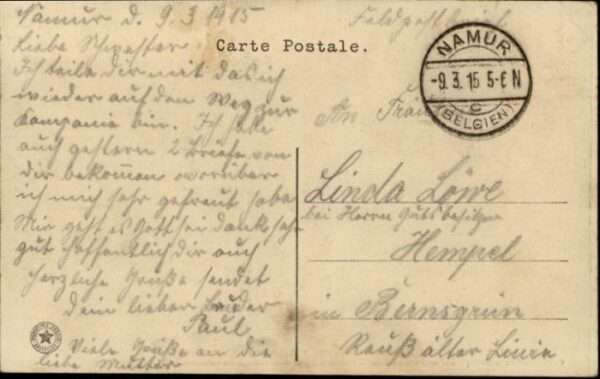 Namur d. 9.3.1915
Liebe Schwester
Ich teile dir mit das ich
wieder auf dem Weg zur
Kompanie bin. Ich habe
auch gestern 2 Briefe von
dir bekommen worüber
ich mich sehr gefreut habe
Mir geht es Gott sei dank sehr
gut hoffentlich dir auch
herzliche Grüße sendet
dein lieber Bruder
Paul
Viele Grüße an die
liebe Mutter
Feldpostbrief
Carte Postale.
NAMUR
-9.3.15 5-6 N
C
(BELGIEN)
An Fräul
Linda Löwe
bei Herrn Gutsbesitzer
Hempel
in Bernsgrün
Reuß älter Linie